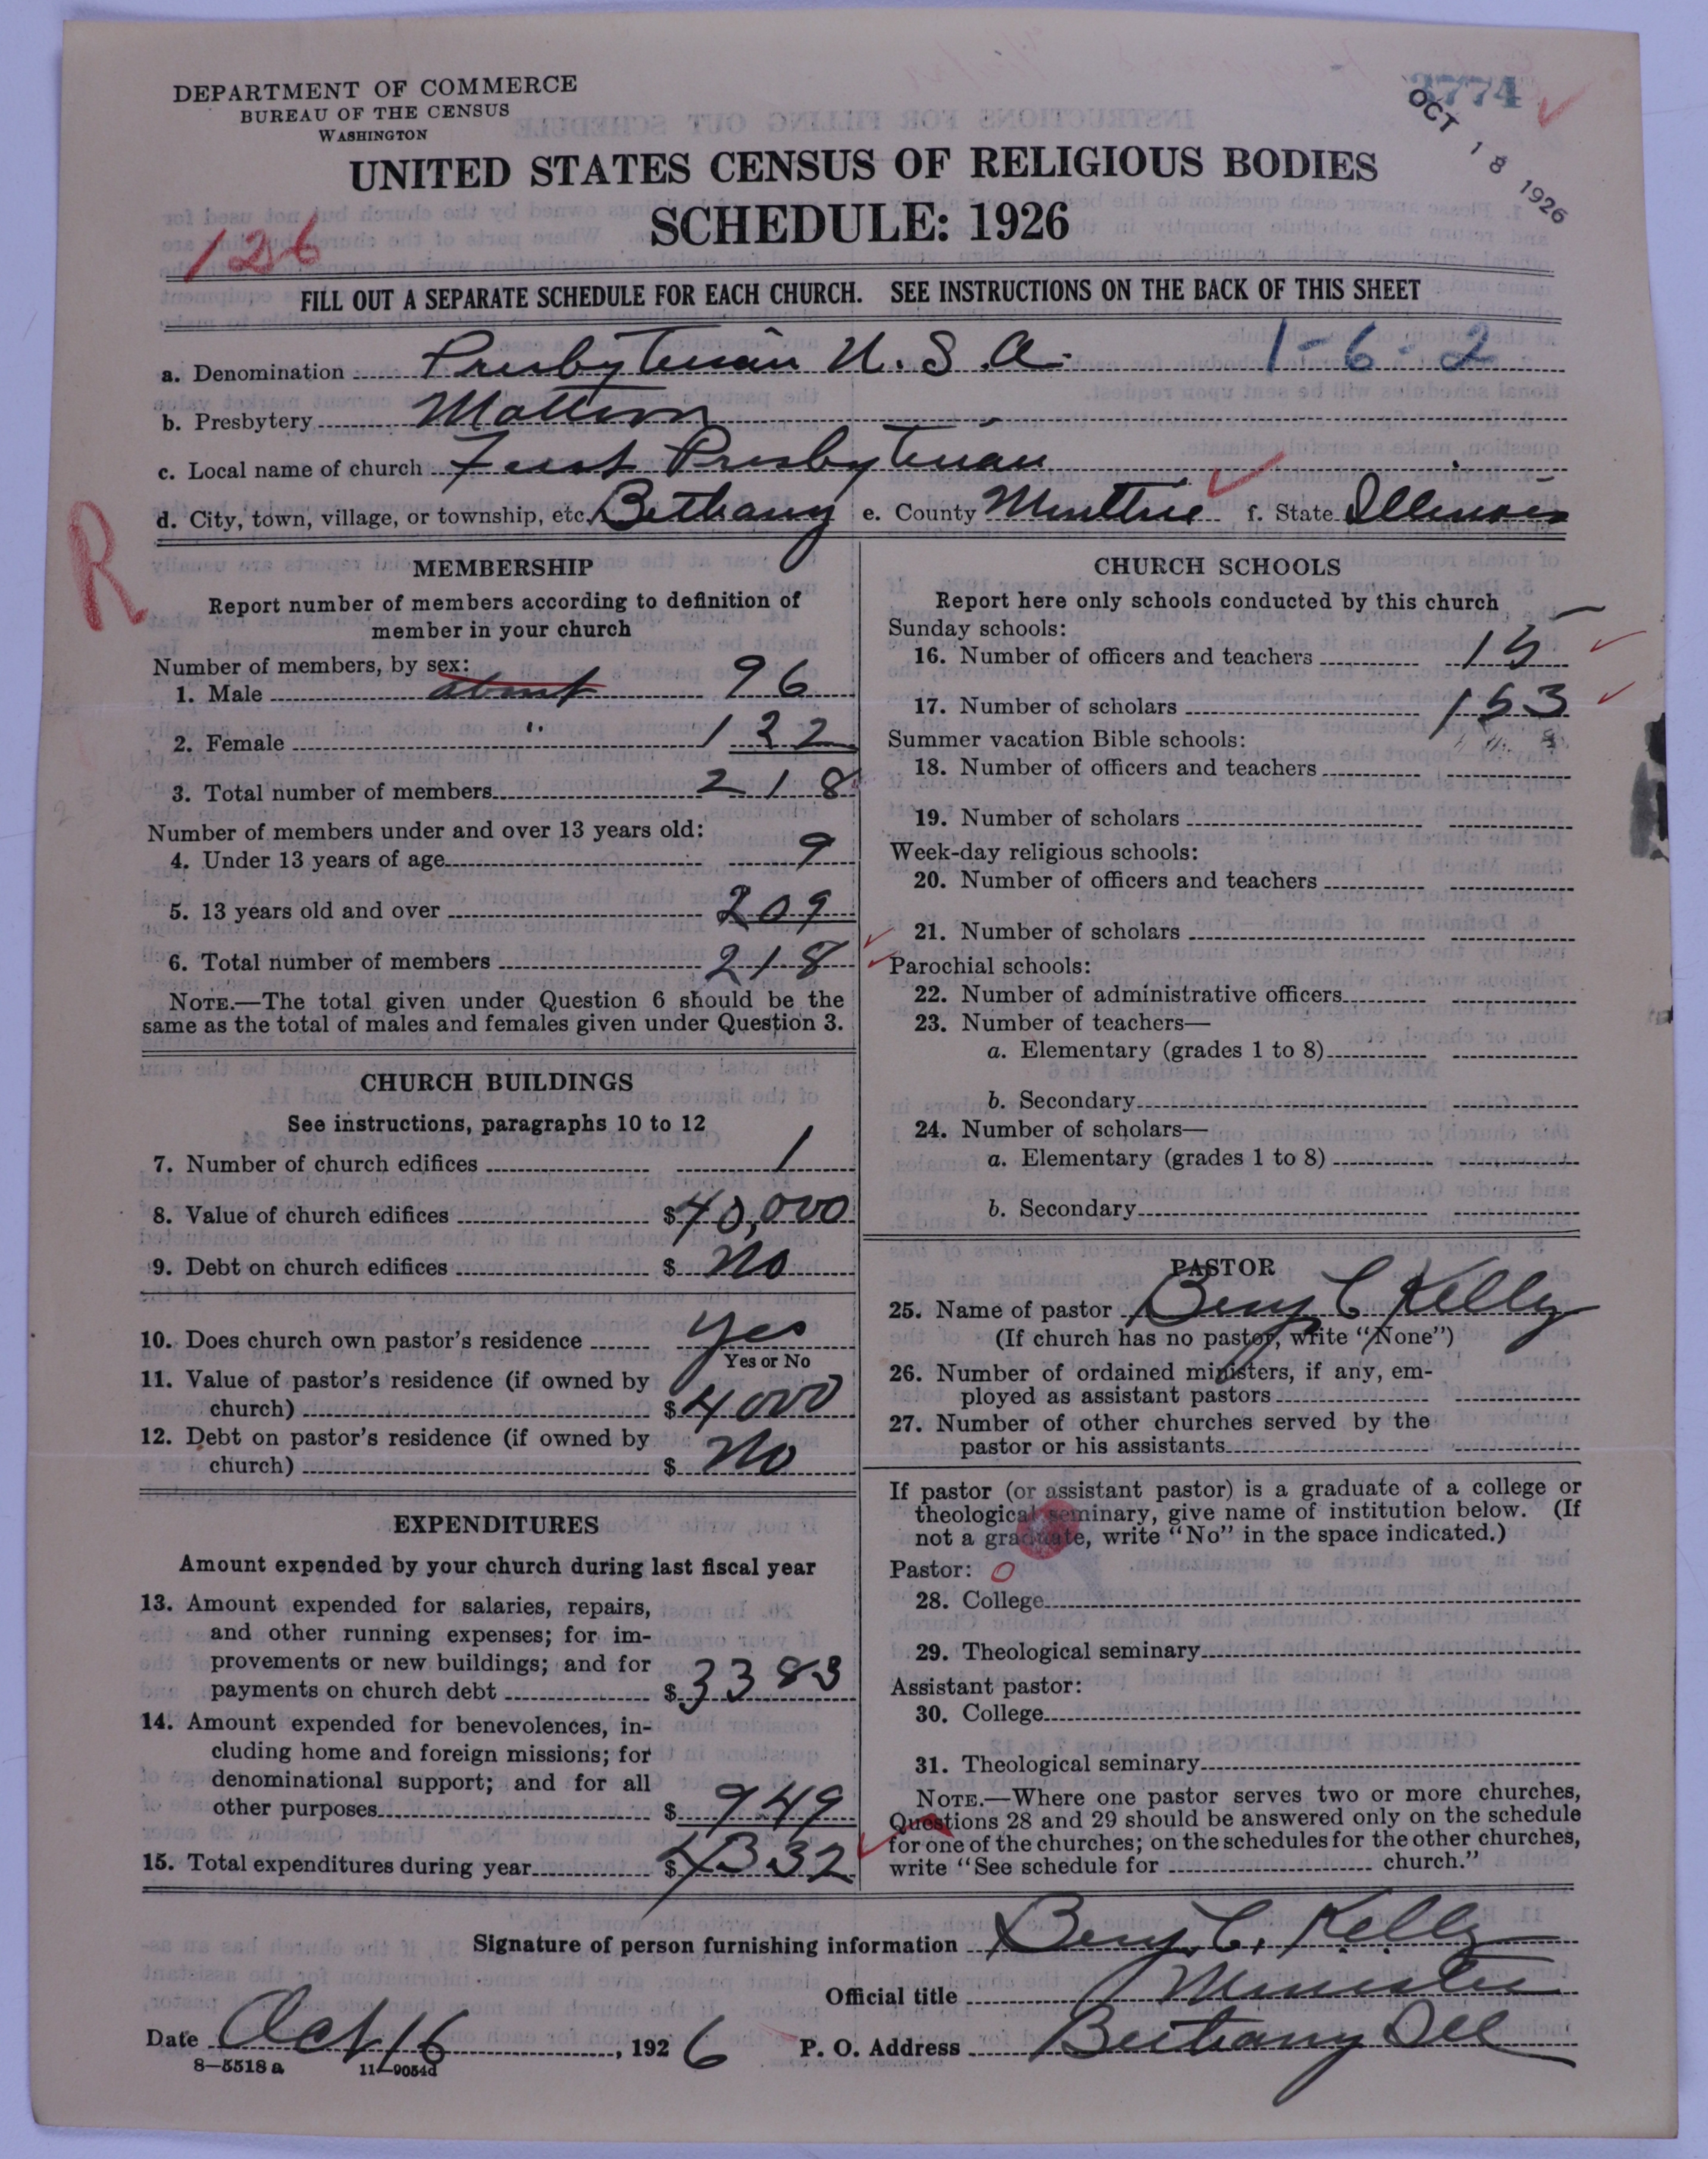 DEPARTMENT OF COMMERCE
BUREAU OF THE CENSUS
WASHINGTON
3774
OCT 18 1926
UNITED STATES CENSUS OF RELIGIOUS BODIES
SCHEDULE: 1926
126
FILL OUT A SEPARATE SCHEDULE FOR EACH CHURCH. SEE INSTRUCTIONS ON THE BACK OF THIS SHEET
a. Denomination Presbyterian U.S.A. 1-6-2
b. Presbytery Mattoon
c. Local name of church First Presbyterian
d. City, town, village, or township, etc. Bethany e. County Moultrie f. State Illinois
R
MEMBERSHIP
Report number of members according to definition of
member in your church
Number of members, by sex:
1. Male about 96
2. Female " 122
3. Total number of members 218
Number of members under and over 13 years old:
4. Under 13 years of age 9
5. 13 years old and over 209
6. Total number of members 218
NOTE.—The total given under Question 6 should be the
same as the total of males and females given under Question 3.
CHURCH BUILDINGS
See instructions, paragraphs 10 to 12
7. Number of church edifices 1
8. Value of church edifices $40,000
9. Debt on church edifices $ No
10. Does church own pastor's residence Yes
Yes or No
11. Value of pastor's residence (if owned by
church) $4000
12. Debt on pastor's residence (if owned by
church) $ No
EXPENDITURES
Amount expended by your church during last fiscal year
13. Amount expended for salaries, repairs,
and other running expenses; for im-
provements or new buildings; and for
payments on church debt $3383
14. Amount expended for benevolences, in-
cluding home and foreign missions; for
denominational support; and for all
other purposes $ 949
15. Total expenditures during year $4332
CHURCH SCHOOLS
Report here only schools conducted by this church
Sunday schools:
16. Number of officers and teachers 15
17. Number of scholars 153
Summer vacation Bible schools:
18. Number of officers and teachers
19. Number of scholars
Week-day religious schools:
20. Number of officers and teachers
21. Number of scholars
Parochial schools:
22. Number of administrative officers
23. Number of teachers—
a. Elementary (grades 1 to 8)
b. Secondary
24. Number of scholars—
a. Elementary (grades 1 to 8)
b. Secondary
PASTOR
25. Name of pastor Benj C Kelly
(If church has no pastor, write "None")
26. Number of ordained ministers, if any, em-
ployed as assistant pastors
27. Number of other churches served by the
pastor or his assistants
If pastor (or assistant pastor) is a graduate of a college or
theological seminary, give name of institution below. (If
not a graduate, write "No" in the space indicated.)
Pastor: O
28. College
29. Theological seminary
Assistant pastor:
30. College
31. Theological seminary
NOTE.—Where one pastor serves two or more churches,
Questions 28 and 29 should be answered only on the schedule
for one of the churches; on the schedules for the other churches,
write "See schedule for church."
Signature of person furnishing information Benj. C. Kelly
Official title Minister
Date Oct 16, 1926 P. O. Address Bethany Ill
8—5518 a 11—9054d